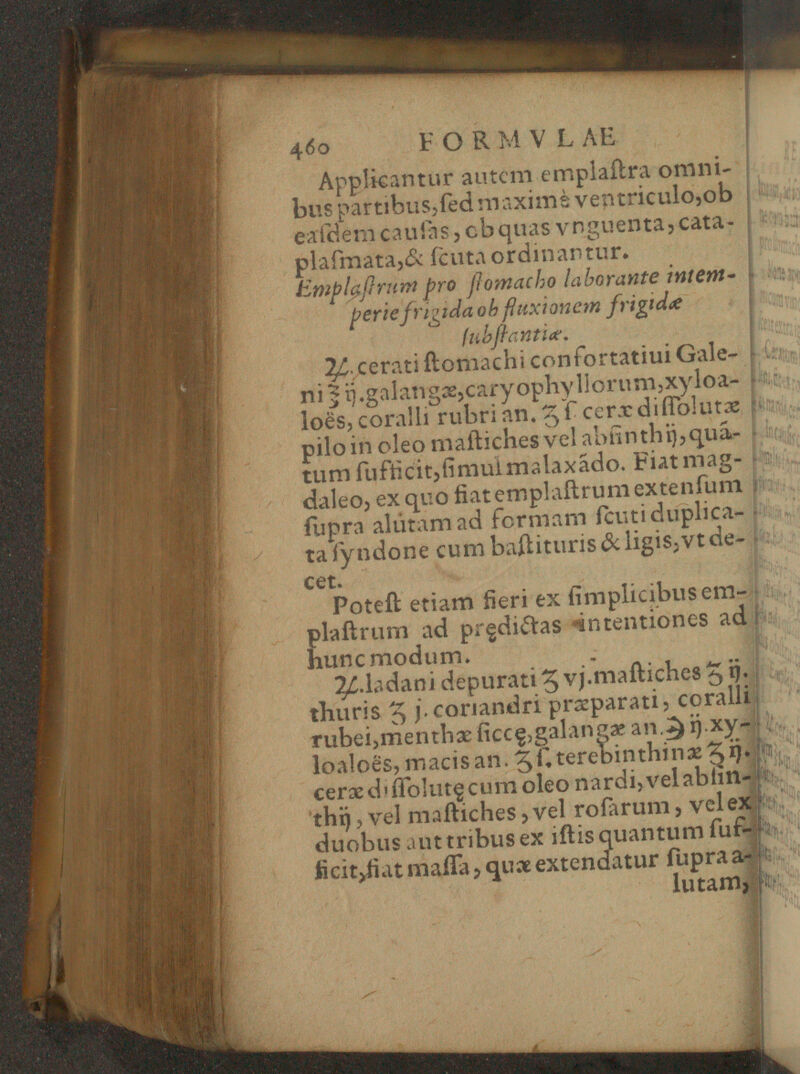 460 FORMVLAE
Applicantur autem emplaſtra omni-
bus partibus, ſed maximè ventriculo, ob
eaſdem cauſas, ob quas vnguenta, cata-
plaſmata, & ſcuta ordinantur.
Emplaſtrum pro ſtomacho laborante intem-
perie frigida ob fluxionem frigidæ
ſubſtantiæ.
℞. cerati ſtomachi confortatiui Gale-
ni ℥ ij. galangæ, caryophyllorum, xyloa-
loës, coralli rubri an. ʒ ſ. ceræ diſſolutæ
pilo in oleo maſtiches vel abſinthij, quā-
tum ſufficit, ſimul malaxādo. Fiat mag-
daleo, ex quo fiat emplaſtrum extenſum
ſupra alutam ad formam ſcuti duplica-
ta ſyndone cum baſtituris & ligis, vt de-
cet.
Poteſt etiam fieri ex ſimplicibus em-
plaſtrum ad prędictas intentiones ad
hunc modum.
℞. ladani depurati ʒ vj. maſtiches ʒ ij.
thuris ʒ j. coriandri præparati, coralli
rubei, menthæ ſiccę, galangæ an. ℈ ij. xy-
loaloës, macis an. ʒ ſ. terebinthinæ ʒ ij.
ceræ diſſolutę cum oleo nardi, vel abſin-
thij, vel maſtiches, vel roſarum, vel ex
duobus aut tribus ex iſtis quantum ſuf-
ficit, fiat maſſa, quæ extendatur ſupra a-
lutam,